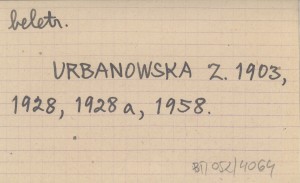 beletr.
URBANOWSKA Z. 1903,
1928, 1928a, 1958.
BT/052/4064